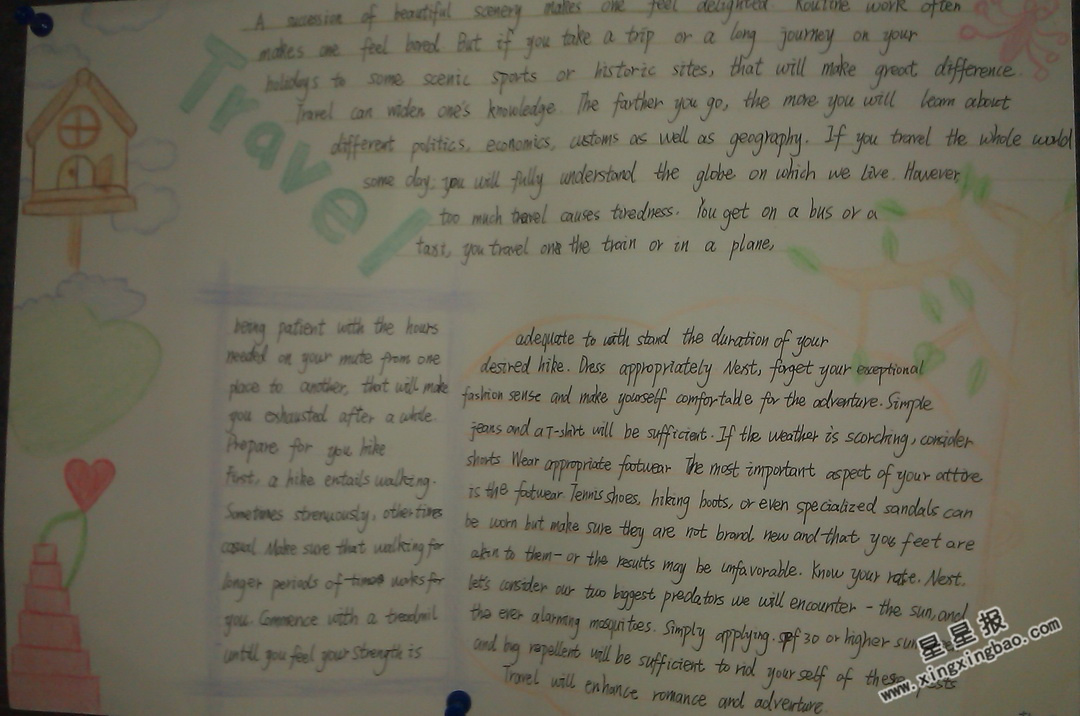 A succession of beautiful scenery makes one feel delighted. Routine work often
makes one feel bored But if you take a trip or a long journey on your
holidays to some scenic sports or historic sites, that will make great difference.
Travel can widen one's knowledge. The farther you go, the more you will learn about
different politics, economics, customs as well as geography. If you travel the whole world
some day, you will fully understand the globe on which we live. However,
too much travel causes tiredness. You get on a bus or a
taxi, you travel one the train or in a plane,
Travel
being patient with the hours
needed on your mute from one
place to another, that will make
you exhausted after a while.
Prepare for you hike
First, a hike entails walking.
Sometimes strenuously, other times
casual. Make sure that walking for
longer periods of times works for
you. Commence with a treadmil
until you feel your strength is
adequate to with stand the duration of your
desired hike. Dress appropriately Next, forget your exceptional
fashion sense and make yourself comfortable for the adventure. Simple
jeans and a T-shirt will be sufficient. If the weather is scorching, consider
shorts Wear appropriate footwear The most important aspect of your attire
is the footwear. Tennis shoes, hiking boots, or even specialized sandals can
be worn but make sure they are not brand new and that you feet are
akin to them - or the results may be unfavorable. Know your rate. Next.
let's consider our two biggest predators we will encounter - the sun, and
the ever alarming mosquitoes. Simply applying. spf 30 or higher sun
and bug repellent will be sufficient to rid your self of these
Travel will enhance romance and adventure.
星星报
www.xingxingbao.com